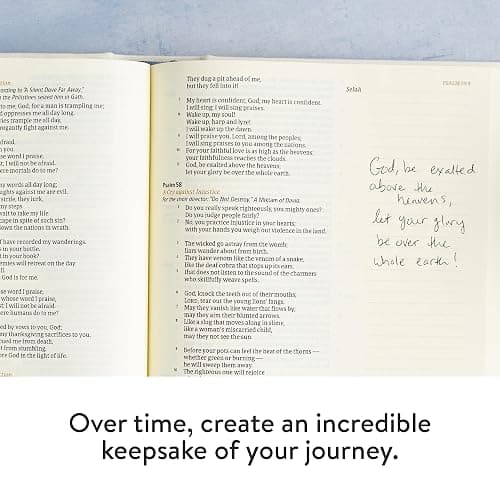 ction
ording to "A Silent Dove Far Away."
the Philistines seized him in Gath.
to me, God, for a man is trampling me;
d oppresses me all day long.
ries trample me all day,
rrogantly fight against me.
afraid,
n you.
se word I praise,
t; I will not be afraid.
ere mortals do to me?
my words all day long;
ughts against me are evil.
strife, they lurk,
my steps
wait to take my life.
cape in spite of such sin?
down the nations in wrath.
f have recorded my wanderings.
s in your bottle.
t in your book?
emies will retreat on the day
ll.
God is for me.
se word I praise,
whose word I praise,
st; I will not be afraid.
ere humans do to me?
ed by vows to you, God;
my thanksgiving sacrifices to you.
cued me from death,
t from stumbling,
ore God in the light of life.
ction
They dug a pit ahead of me,
but they fell into it!
Selah
PSALM 59:5
7 My heart is confident, God, my heart is confident.
I will sing; I will sing praises.
8 Wake up, my soul!
Wake up, harp and lyre!
I will wake up the dawn.
9 I will praise you, Lord, among the peoples;
I will sing praises to you among the nations.
10 For your faithful love is as high as the heavens;
your faithfulness reaches the clouds.
11 God, be exalted above the heavens;
let your glory be over the whole earth.
Psalm 58
A Cry against Injustice
for the choir director: "Do Not Destroy." A Miktam of David.
1 Do you really speak righteously, you mighty ones?
Do you judge people fairly?
2 No, you practice injustice in your hearts;
with your hands you weigh out violence in the land.
3 The wicked go astray from the womb;
liars wander about from birth.
4 They have venom like the venom of a snake,
like the deaf cobra that stops up its ears,
5 that does not listen to the sound of the charmers
who skillfully weave spells.
6 God, knock the teeth out of their mouths;
LORD, tear out the young lions' fangs.
7 May they vanish like water that flows by;
may they aim their blunted arrows.
8 Like a slug that moves along in slime,
like a woman's miscarried child,
may they not see the sun.
9 Before your pots can feel the heat of the thorns —
whether green or burning —
he will sweep them away.
10 The righteous one will rejoice
God, be exalted
above the
heavens,
let your glory
be over the
whole earth!
Over time, create an incredible
keepsake of your journey.